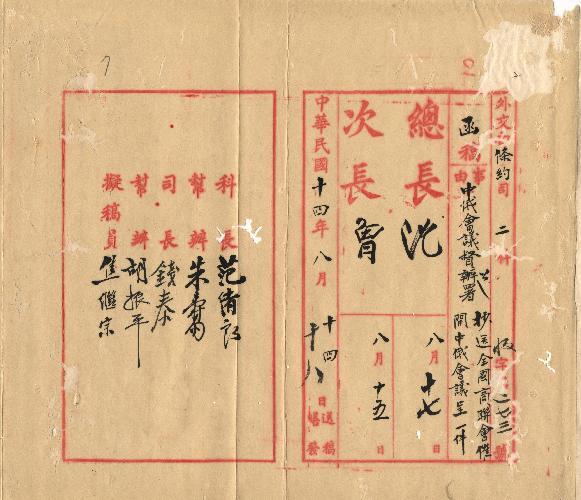 外交部條約司
二件
收字二七三號
函稿
事由
中俄會議督辦署公
抄送全國商聯會催
開中俄會議呈一件
總長 沈
八月十七日
次長 曾
八月十五日
中華民國十四年八月
十四日送稿
十八日繕發
科長
幫辦 朱
司長 錢泰
幫辦 胡振平
擬稿員 焦繼宗